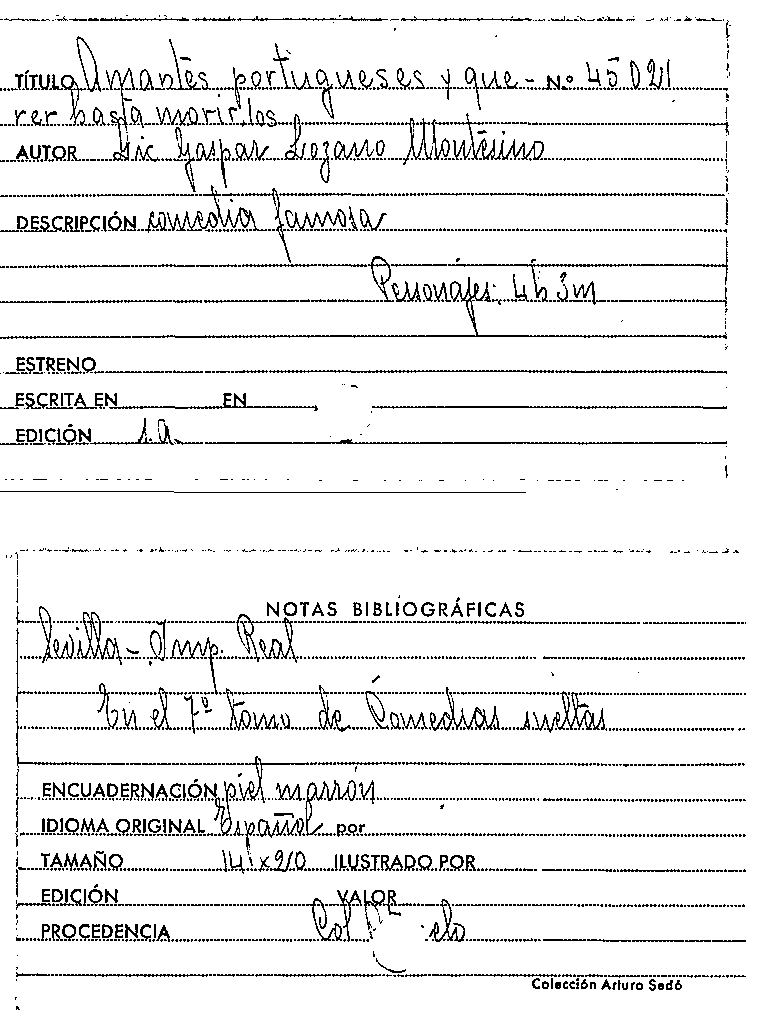 TÍTULO Amantes portugueses y que- Nº 45021
rer hasta morir, los
AUTOR Lic Gaspar Lozano Montesino
DESCRIPCIÓN comedia famosa
Personajes: 4h 3m
ESTRENO
ESCRITA EN EN
EDICIÓN s.a.
NOTAS BIBLIOGRÁFICAS
Sevilla - Imp. Real
En el 7º tomo de Comedias sueltas
ENCUADERNACIÓN piel marrón
IDIOMA ORIGINAL Español por
TAMAÑO 141x210 ILUSTRADO POR
EDICIÓN VALOR
PROCEDENCIA Col
Colección Arturo Sedó